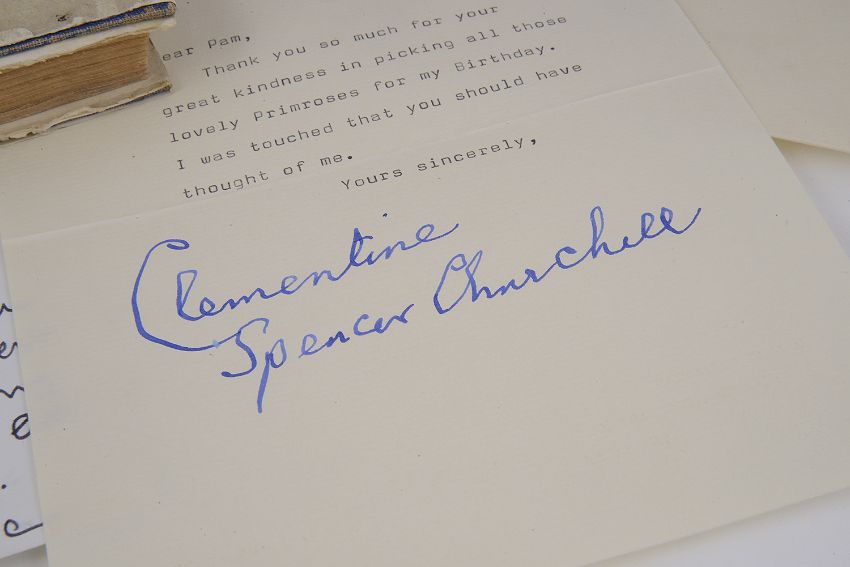 ear Pam,
Thank you so much for your
great kindness in picking all those
lovely Primroses for my Birthday.
I was touched that you should have
thought of me.
Yours sincerely,
Clementine
Spencer Churchill